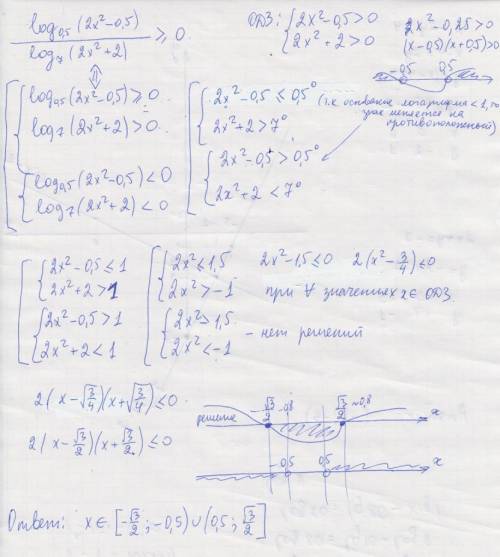 log₀,₅(2x²-0,5) / log₇(2x²+2) ≥ 0
ОДЗ: { 2x²-0,5>0
2x²+2>0
2x²-0,25>0
(x-0,5)(x+0,5)>0
-0,5 0,5
⇕
[ { log₀,₅(2x²-0,5) ≥ 0
log₇(2x²+2) > 0
{ log₀,₅(2x²-0,5) < 0
log₇(2x²+2) < 0
[ { 2x²-0,5 ≤ 0,5⁰
2x²+2 > 7⁰
{ 2x²-0,5 > 0,5⁰
2x²+2 < 7⁰
(т.к основание логарифма < 1, то
знак меняется на
противоположный)
[ { 2x²-0,5 ≤ 1
2x²+2 > 1
{ 2x²-0,5 > 1
2x²+2 < 1
[ { 2x² ≤ 1,5
2x² > -1
{ 2x² > 1,5
2x² < -1
2x²-1,5 ≤ 0 2(x²-3/4) ≤ 0
при ∀ значениях x ∈ ОДЗ
- нет решений
2(x-√(3/4))(x+√(3/4)) ≤ 0
2(x-√3/2)(x+√3/2) ≤ 0
решение -√3/2 -0,8 √3/2 ≈0,8 x
-0,5 0,5 x
Ответ: x ∈ [-√3/2; -0,5) ∪ (0,5; √3/2]